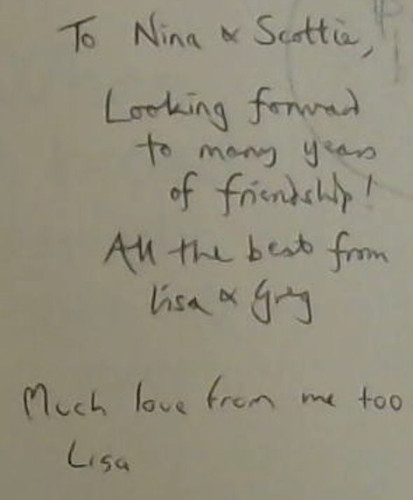 To Nina & Scottie,
Looking forward
to many years
of friendship!
All the best from
Lisa & Greg
Much love from me too
Lisa